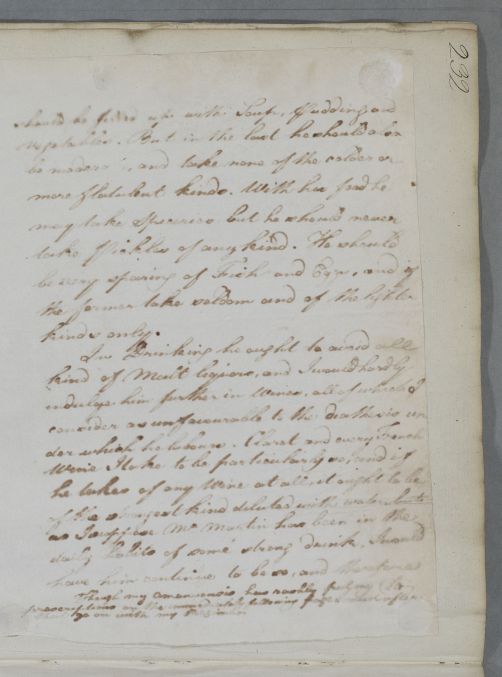 232
should be filled up with Soup, Pudding and
Vegetables. But in the last he should also
be moderate, and take none of the colder or
more flatulent kinds. With his food he
may take Spiceries but he should never
take Pickles of any kind. He should
be very sparing of Fish and Eggs, and if
the former take seldom and of the lighter
kinds only.
In Drinking he ought to avoid all
kind of Malt liquors, and I would hardly
indulge him further in Wines, all of which I
consider as unfavourable to the Diathesis un
der which he labours. Claret and every French
Wine I take to be particularly so, and if
he takes of any Wine at all, it ought to be
of the strongest kind diluted with water. But
as I suppose Mr Martin has been in the
daily habits of some strong drink, I would
have him continue to be so, and therefore
Though my amanuensis has rashly put my
prescriptions on the immediately following page must after
that go on with my